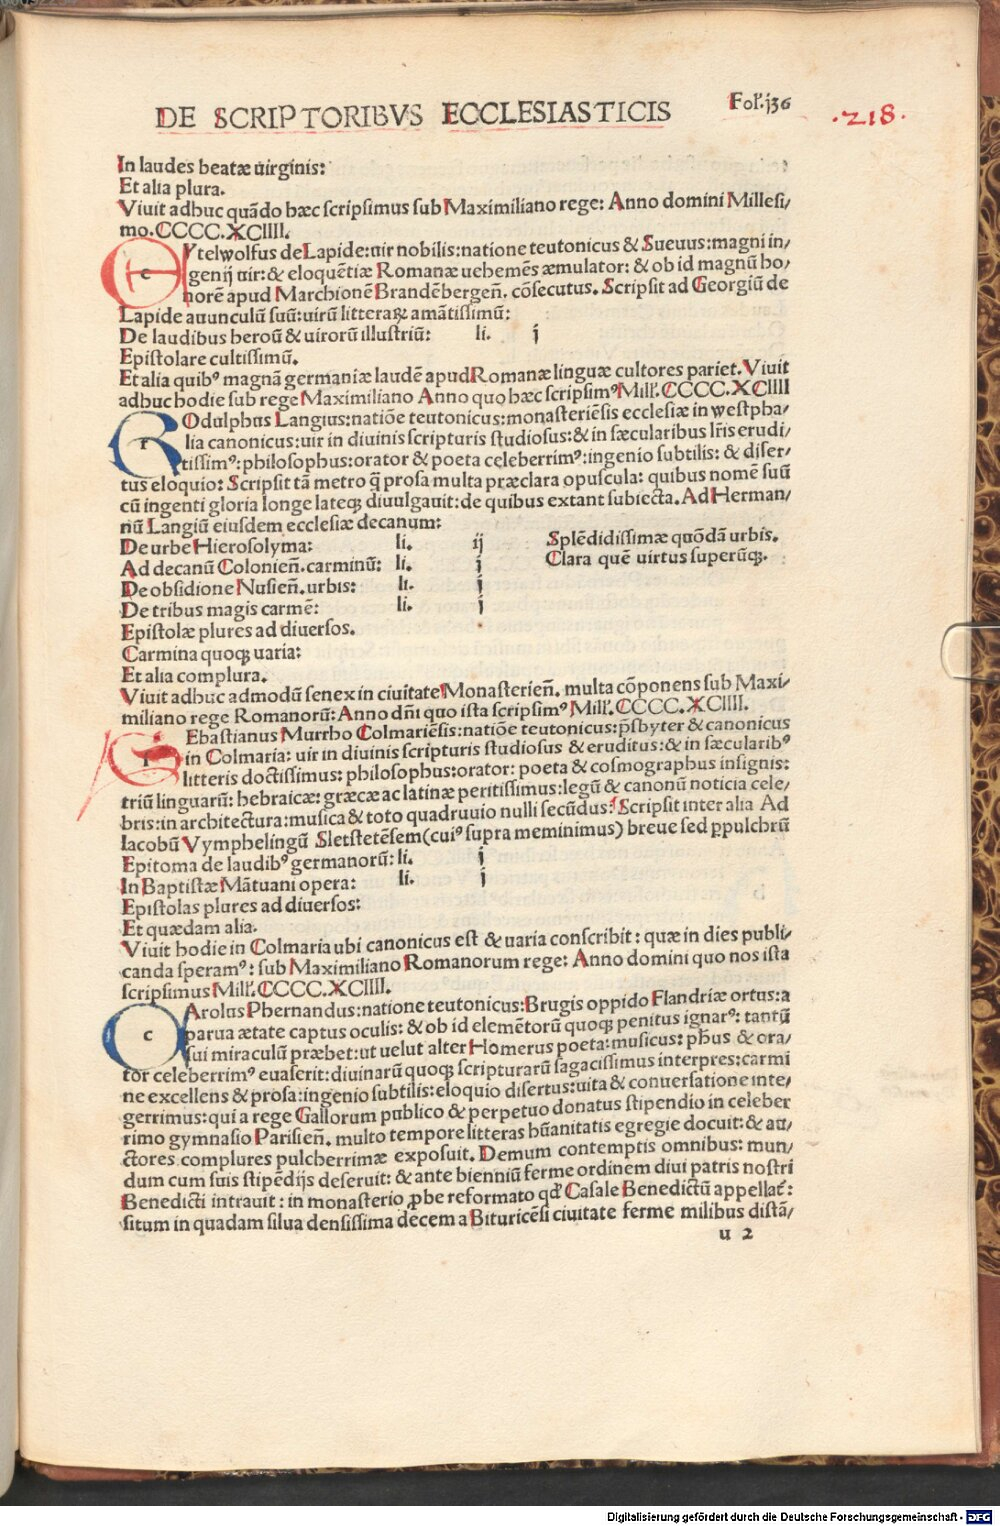 DE SCRIPTORIBVS ECCLESIASTICIS Fol. j36 .218.
In laudes beatæ uirginis:
Et alia plura.
Viuit adhuc quãdo hæc scripsimus sub Maximiliano rege: Anno domini Millesi/
mo.CCCC.XCIIII.
EYtelwolfus de Lapide:uir nobilis:natione teutonicus & Sueuus:magni in/
genij uir:& eloquẽtiæ Romanæ uehemẽs æmulator:& ob id magnũ ho/
norẽ apud Marchionẽ Brandẽbergeñ. cõsecutus. Scripsit ad Georgiũ de
Lapide auunculũ suũ:uirũ litterarꝝ amãtissimũ:
De laudibus heroũ & uirorũ illustriũ: li. j
Epistolare cultissimũ.
Et alia quibꝰ magnã germaniæ laudẽ apud Romanæ linguæ cultores pariet. Viuit
adhuc hodie sub rege Maximiliano Anno quo hæc scripsimꝰ Mill'.CCCC.XCIIII
ROdulphus Langius:natiõe teutonicus:monasteriẽsis ecclesiæ in westpha/
lia canonicus:uir in diuinis scripturis studiosus:& in sæcularibus lr̃is erudi/
tissimꝰ:philosophus:orator & poeta celeberrimꝰ:ingenio subtilis: & diser/
tus eloquio: Scripsit tã metro q̃ prosa multa præclara opuscula: quibus nomẽ suũ
cũ ingenti gloria longe lateqꝫ diuulgauit:de quibus extant subiecta. Ad Herman/
nũ Langiũ eiusdem ecclesiæ decanum:
De urbe Hierosolyma: li. ij Splẽdidissimæ quõdã urbis.
Ad decanũ Colonieñ.carminũ: li. j Clara quẽ uirtus superũqꝫ.
De obsidione Nusieñ.urbis: li. j
De tribus magis carmẽ: li. j
Epistolæ plures ad diuersos.
Carmina quoqꝫ uaria:
Et alia complura.
Viuit adhuc admodũ senex in ciuitate Monasterieñ. multa cõponens sub Maxi/
miliano rege Romanorũ: Anno dñi quo ista scripsimꝰ Mill'.CCCC.XCIIII.
SEbastianus Murrho Colmariẽsis:natiõe teutonicus:p̃sbyter & canonicus
in Colmaria: uir in diuinis scripturis studiosus & eruditus:& in sæcularibꝰ
litteris doctissimus: philosophus:orator: poeta & cosmographus insignis:
triũ linguarũ: hebraicæ: græcæ ac latinæ peritissimus:legũ & canonũ noticia cele/
bris:in architectura:musica & toto quadruuio nulli secũdus: Scripsit inter alia Ad
Iacobũ Vymphelingũ Sletstetẽsem(cuiꝰ supra meminimus) breue sed ꝑpulchrũ
Epitoma de laudibꝰ germanorũ: li. j
In Baptistæ Mãtuani opera: li. j
Epistolas plures ad diuersos:
Et quædam alia.
Viuit hodie in Colmaria ubi canonicus est & uaria conscribit: quæ in dies publi/
canda speramꝰ: sub Maximiliano Romanorum rege: Anno domini quo nos ista
scripsimus Mill'.CCCC.XCIIII.
CArolus Phernandus:natione teutonicus:Brugis oppido Flandriæ ortus:a
parua ætate captus oculis: & ob id elemẽtorũ quoqꝫ penitus ignarꝰ: tantũ
sui miraculũ præbet:ut uelut alter Homerus poeta:musicus: pħus & ora/
tor celeberrimꝰ euaserit:diuinarũ quoqꝫ scripturarũ sagacissimus interpres:carmi
ne excellens & prosa:ingenio subtilis:eloquio disertus:uita & conuersatione inte/
gerrimus:qui a rege Gallorum publico & perpetuo donatus stipendio in celeber
rimo gymnasio Parisieñ. multo tempore litteras hũanitatis egregie docuit:& au/
ctores complures pulcherrimæ exposuit. Demum contemptis omnibus: mun/
dum cum suis stipẽdijs deseruit: & ante bienniũ ferme ordinem diui patris nostri
Benedicti intrauit: in monasterio ꝓbe reformato qđ Casale Benedictũ appellat̃:
situm in quadam silua densissima decem a Bituricẽsi ciuitate ferme milibus distã/
u 2
Digitalisierung gefördert durch die Deutsche Forschungsgemeinschaft - DFG